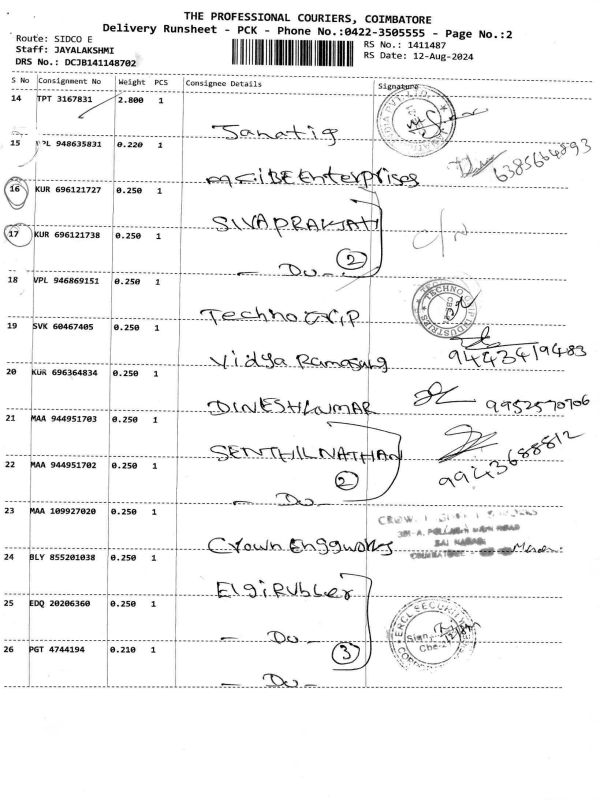 THE PROFESSIONAL COURIERS, COIMBATORE
Delivery Runsheet - PCK - Phone No.:0422-3505555 - Page No.:2
Route: SIDCO E
Staff: JAYALAKSHMI
DRS No.: DCJB141148702
RS No.: 1411487
RS Date: 12-Aug-2024
S No Consignment No Weight PCS Consignee Details Signature
14 TPT 3167831 2.800 1
15 VPL 948635831 0.220 1 6385664893
Enterprises
16 KUR 696121727 0.250 1
SIVAPRAKASH
17 KUR 696121738 0.250 1
- Do - 2
18 VPL 946869151 0.250 1
Techno Grip
TECHNO
INDUSTRIES
19 SVK 60467405 0.250 1
Vidya 9443419483
20 KUR 696364834 0.250 1
DINESHKUMAR 9952570706
21 MAA 944951703 0.250 1
SENTHILNATHAN 9943688812
22 MAA 944951702 0.250 1
- Do - 2
23 MAA 109927020 0.250 1
Crown Enggworks
MAIN ROAD
24 BLY 855201038 0.250 1
Elgi Rubber
25 EDQ 20206360 0.250 1
- Do -
26 PGT 4744194 0.210 1 3
- Do -